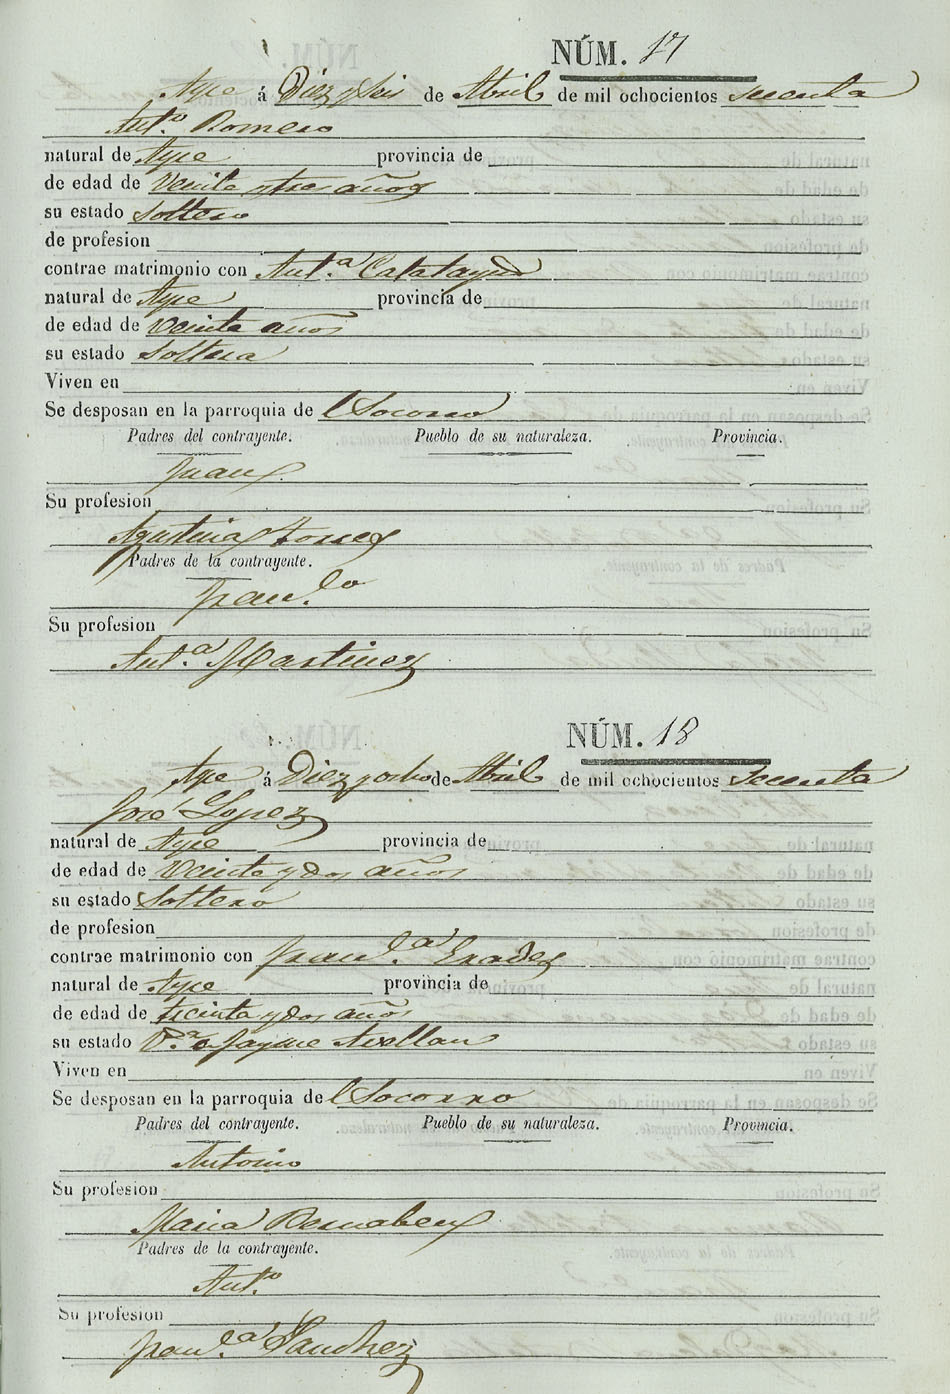 NÚM. 17
Aspe á Diez y Seis de Abril de mil ochocientos secenta
Ant.º Romero
natural de Aspe provincia de
de edad de Veinte y tres años
su estado Soltero
de profesion
contrae matrimonio con Ant.ª Calatayud
natural de Aspe provincia de
de edad de Veinte años
su estado Soltera
Viven en
Se desposan en la parroquia de l Socorro
Padres del contrayente. Pueblo de su naturaleza. Provincia.
Juan
Su profesion
Agustina Torres
Padres de la contrayente.
Fran.co
Su profesion
Ant.ª Martinez
NÚM. 18
Aspe á Diez y ocho de Abril de mil ochocientos secenta
José Lopez
natural de Aspe provincia de
de edad de Veinte y dos años
su estado Soltero
de profesion
contrae matrimonio con Fran.ca Erades
natural de Aspe provincia de
de edad de treinta y dos años
su estado V.da Jayme Avellan
Viven en
Se desposan en la parroquia de l Socorro
Padres del contrayente. Pueblo de su naturaleza. Provincia.
Antonio
Su profesion
Maria Bernabeu
Padres de la contrayente.
Ant.º
Su profesion
Fran.ca Sanchez